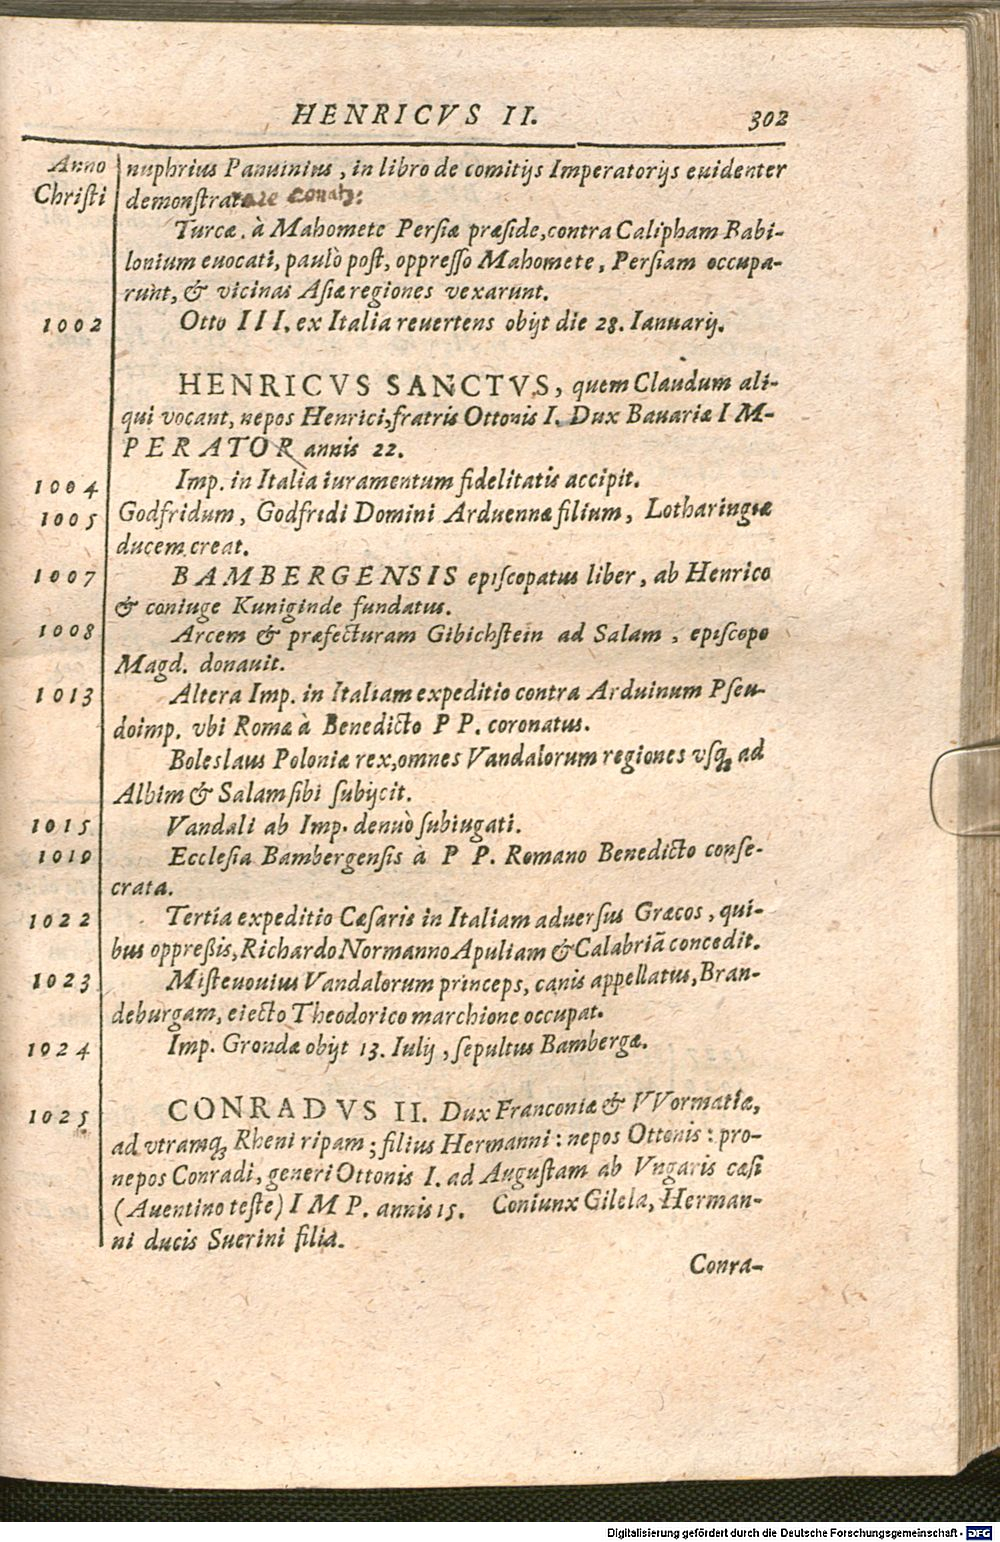 HENRICVS II. 302
Anno nuphrius Panuinius, in libro de comitijs Imperatorijs euidenter
Christi demonstrat
Turcæ. à Mahomete Persiæ præside, contra Calipham Babi-
lonium euocati, paulò post, oppresso Mahomete, Persiam occupa-
runt, & vicinas Asiæ regiones vexarunt.
1002 Otto III. ex Italia reuertens obijt die 28. Ianuarij.
HENRICVS SANCTVS, quem Claudum ali-
qui vocant, nepos Henrici, fratris Ottonis I. Dux Bauariæ IM-
PERATOR annis 22.
1004 Imp. in Italia iuramentum fidelitatis accipit.
1005 Godfridum, Godfridi Domini Arduennæ filium, Lotharingiæ
ducem creat.
1007 BAMBERGENSIS episcopatus liber, ab Henrico
& coniuge Kuniginde fundatus.
1008 Arcem & præfecturam Gibichstein ad Salam, episcopo
Magd. donauit.
1013 Altera Imp. in Italiam expeditio contra Arduinum Pseu-
doimp. vbi Romæ à Benedicto PP. coronatus.
Boleslaus Poloniæ rex, omnes Vandalorum regiones vsq; ad
Albim & Salam sibi subijcit.
1015 Vandali ab Imp. denuò subiugati.
1019 Ecclesia Bambergensis à PP. Romano Benedicto conse-
crata.
1022 Tertia expeditio Cæsaris in Italiam aduersus Græcos, qui-
bus oppreßis, Richardo Normanno Apuliam & Calabriã concedit.
1023 Misteuouius Vandalorum princeps, canis appellatus, Bran-
deburgam, eiecto Theodorico marchione occupat.
1024 Imp. Grondæ obijt 13. Iulij, sepultus Bambergæ.
1025 CONRADVS II. Dux Franconiæ & VVormatiæ,
ad vtramq; Rheni ripam; filius Hermanni: nepos Ottonis: pro-
nepos Conradi, generi Ottonis I. ad Augustam ab Vngaris cæsi
(Auentino teste) IMP. annis 15. Coniunx Gilela, Herman-
ni ducis Sueuini filia.
Conra-
Digitalisierung gefördert durch die Deutsche Forschungsgemeinschaft - DFG